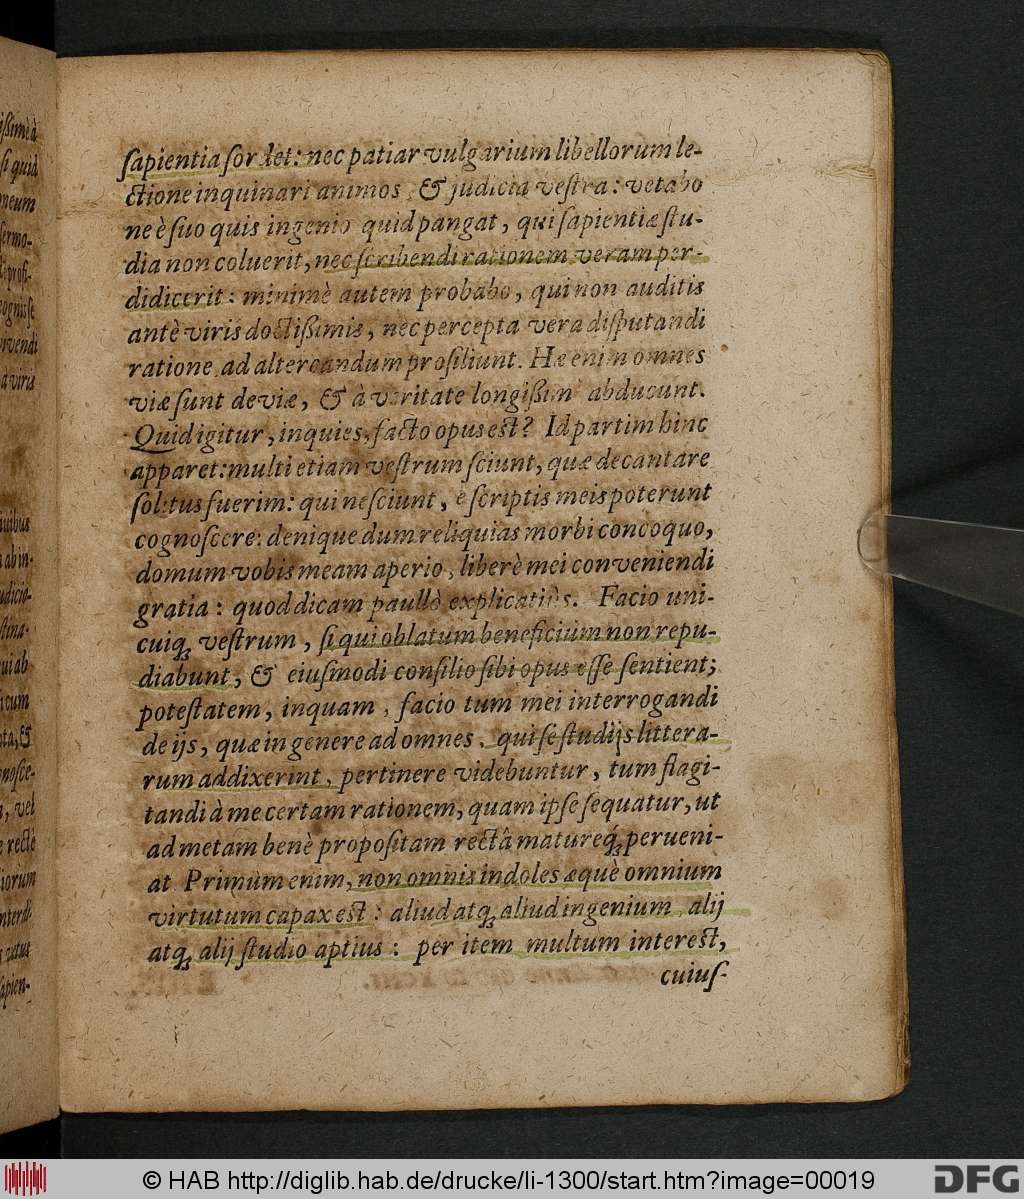 ſapientia ſordet: nec patiar vulgarium libellorum le-
ctione inquinari animos, & judicia veſtra: vetabo
ne è ſuo quis ingenio quid pangat, qui ſapientiæ ſtu-
dia non coluerit, nec ſcribendi rationem veram per-
didicerit: minimè autem probabo, qui non auditis
antè viris doctiſſimis, nec percepta vera diſputandi
ratione ad altercandum proſiliunt. Hæ enim omnes
viæ ſunt deviæ, & à veritate longiſſimè abducunt.
Quid igitur, inquies, facto opus eſt? Id partim hinc
apparet: multi etiam veſtrum ſciunt, quæ decantare
ſolitus fuerim: qui neſciunt, è ſcriptis meis poterunt
cognoſcere: denique dum reliquias morbi concoquo,
domum vobis meam aperio, liberè mei conveniendi
gratia: quod dicam paullò explicatiùs. Facio uni-
cuiqꝫ veſtrum, ſi qui oblatum beneficium non repu-
diabunt, & eiuſmodi conſilio ſibi opus eſſe ſentient;
poteſtatem, inquam, facio tum mei interrogandi
de ijs, quæ in genere ad omnes, qui ſe ſtudijs littera-
rum addixerint, pertinere videbuntur, tum flagi-
tandi à me certam rationem, quam ipſe ſequatur, ut
ad metam benè propoſitam rectâ matureqꝫ perueni-
at Primùm enim, non omnis indoles æquè omnium
virtutum capax eſt: aliud atqꝫ aliud ingenium, alij
atqꝫ alij ſtudio aptius: per item multum intereſt,
cuiuſ-
ißimè à
ſi quid
ſermo-
vivendi
à viris
ab in-
qui ab
noſce-
, vel
rectè
ſapien-
© HAB http://diglib.hab.de/drucke/li-1300/start.htm?image=00019
DFG